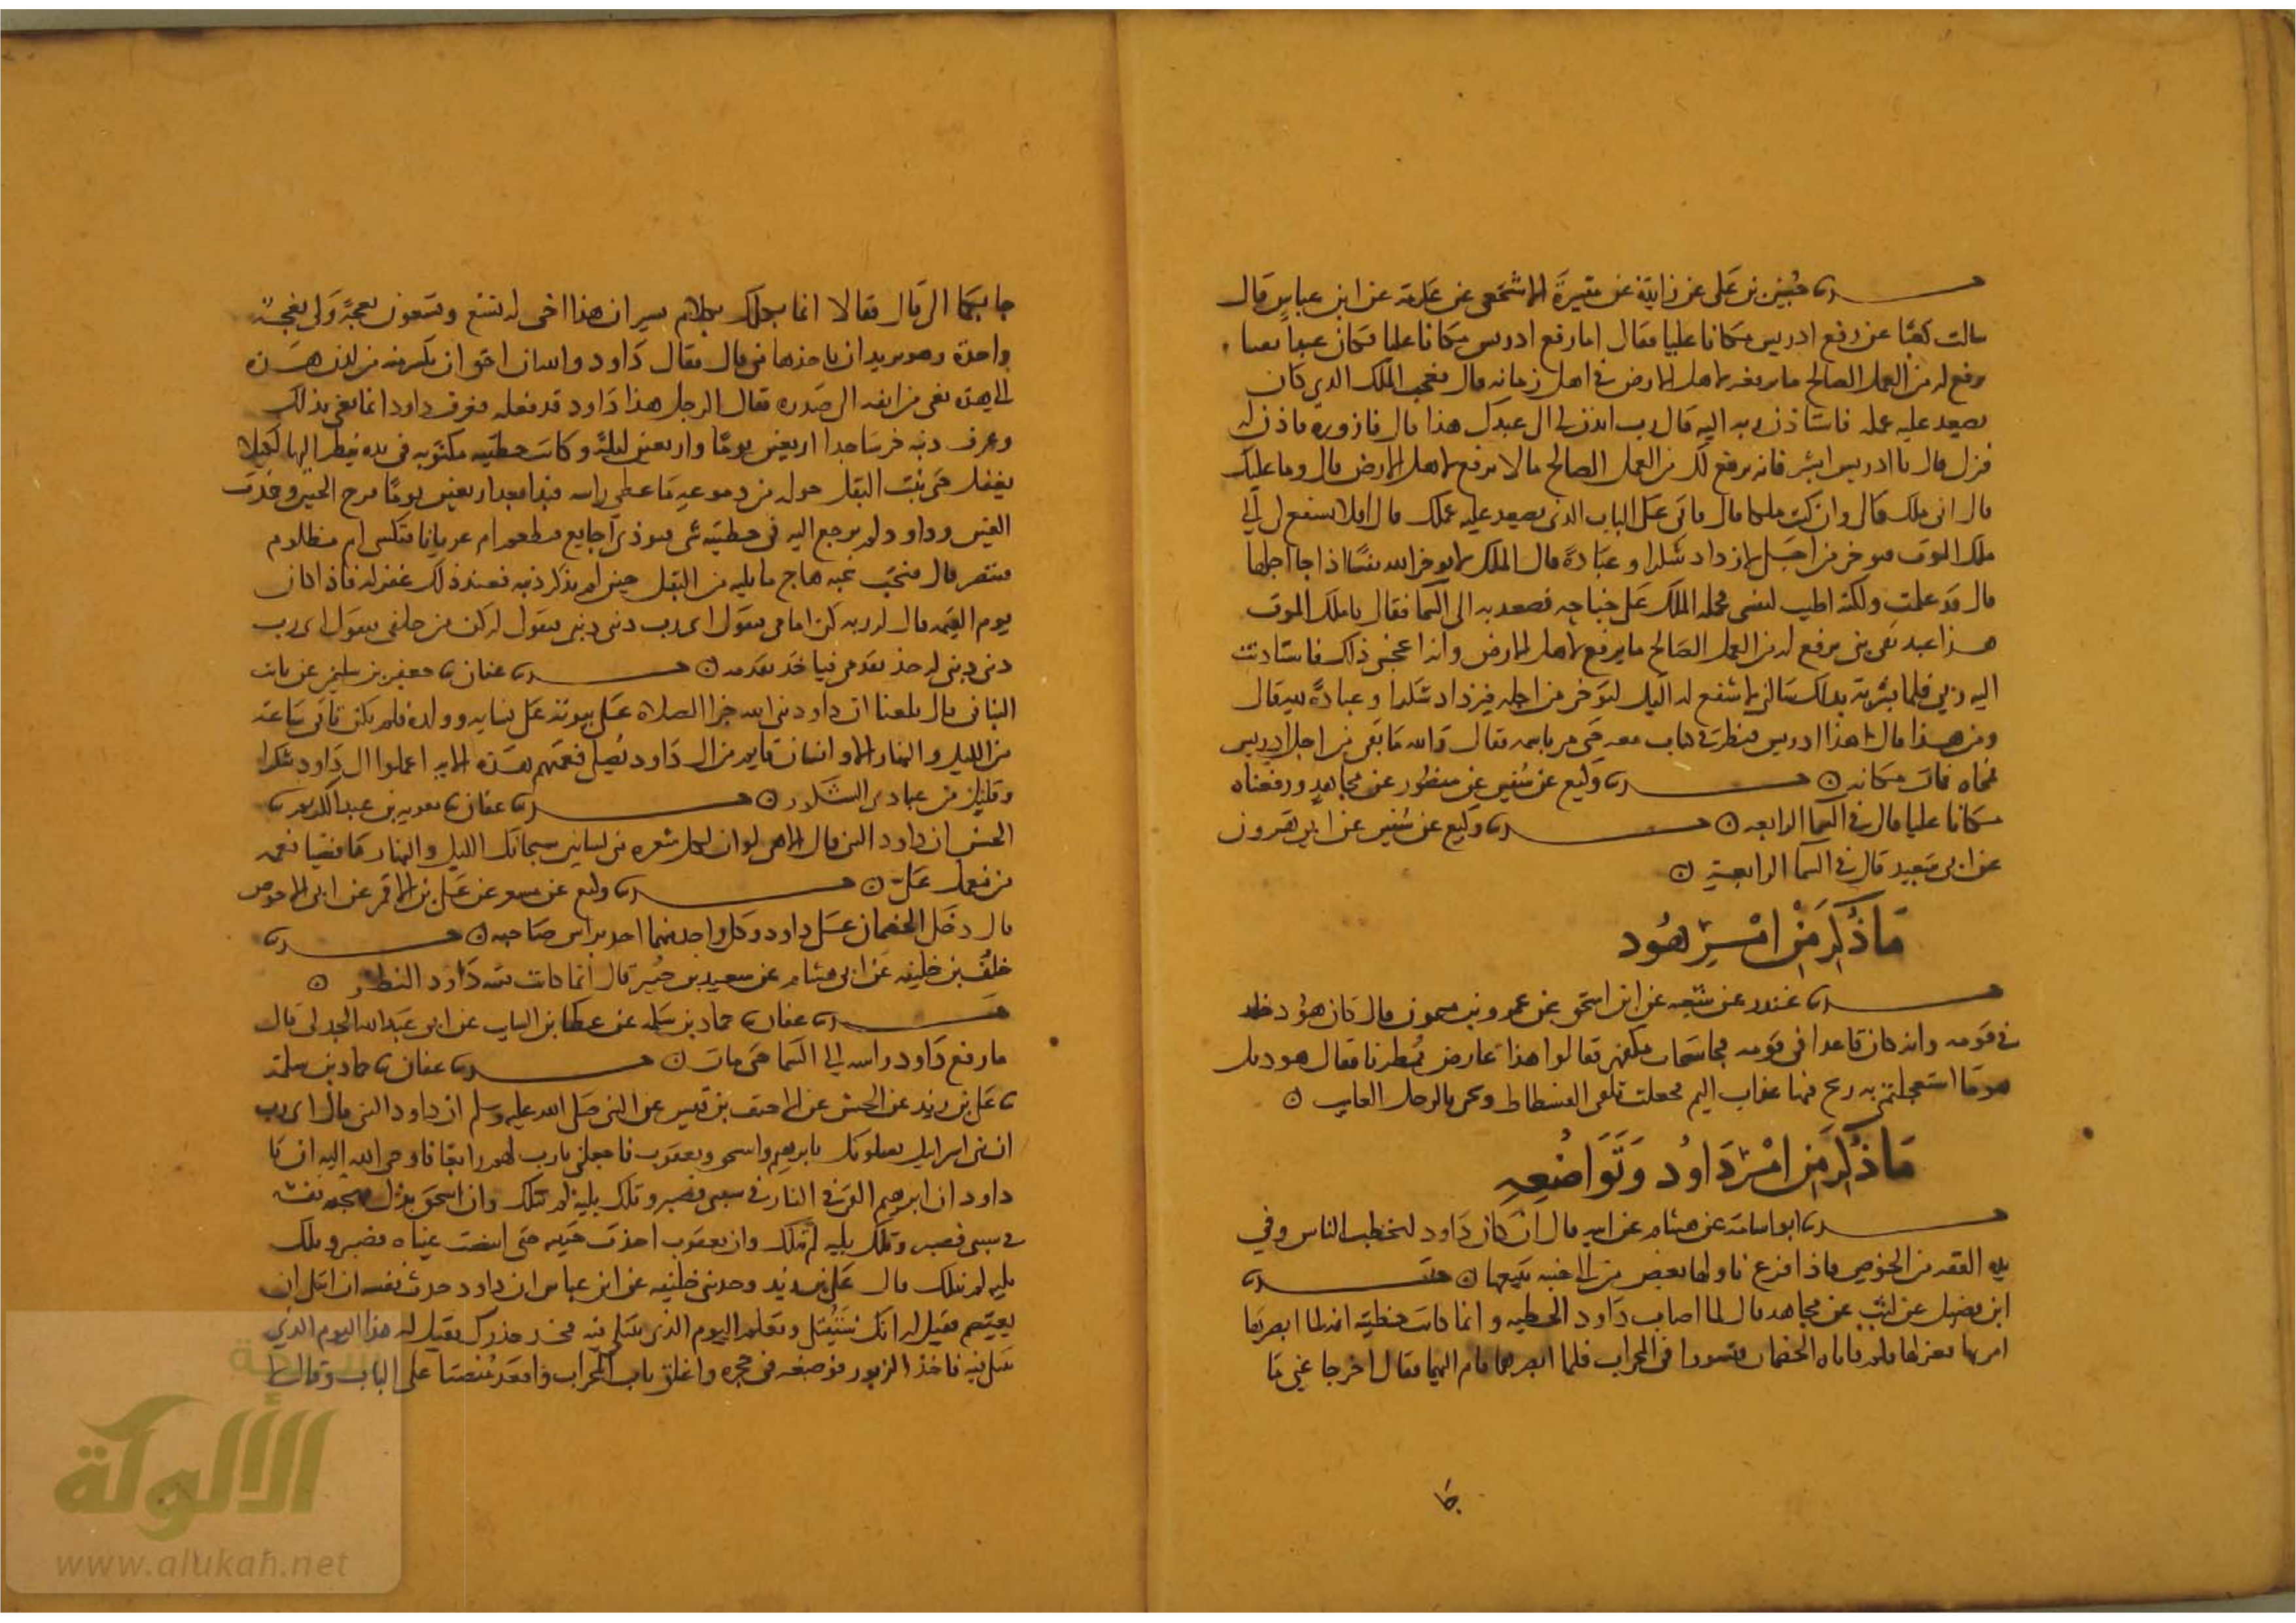 حدثنا حسين بن علي عن زائدة عن ميسرة الاشجعي عن عكرمة عن ابن عباس قال
سالت كعبا عن رفع ادريس مكانا عليا فقال اما رفع ادريس مكانا عليا فكان عبدا تقيا
يرفع له من العمل الصالح ما يرفع لاهل الارض في اهل زمانه قال فعجب الملك الذي كان
يصعد عليه عمله فاستاذن ربه اليه قال رب ائذن لي الى عبدك هذا قال فازوره فاذن له
فنزل قال يا ادريس ابشر فانه يرفع لك من العمل الصالح ما لا يرفع لاهل الارض قال وما علمك
قال اني ملك قال وان كنت ملكا قال فاني على الباب الذي يصعد عليه عملك قال افلا تشفع لي الى
ملك الموت فيوخر من اجلي لازداد شكرا وعبادة قال الملك لا يوخر الله نفسا اذا جا اجلها
قال قد علمت ولكنه اطيب لنفسي فحمله الملك على جناحه فصعد به الى السما فقال يا ملك الموت
هذا عبد تقي نبي يرفع له من العمل الصالح ما يرفع لاهل الارض وانه اعجبني ذلك فاستاذنت
اليه ربي فلما بشرته بذلك سالني لاشفع له اليك لتوخر من اجله فيزداد شكرا وعبادة لله قال
ومن هذا قال هذا ادريس فنظر في كتاب معه حتى مر باسمه فقال والله ما بقي من اجل ادريس
فمحاه فمات مكانه ۝ حدثنا وكيع عن سفين عن منصور عن مجاهد ورفعناه
مكانا عليا قال في السما الرابعة ۝ حدثنا وكيع عن سفين عن ابي هرون
عن ابي سعيد قال في السما الرابعة ۝
ما ذكر من امر هود
حدثنا غندر عن شعبه عن ابي اسحق عن عمرو بن ميمون قال كان هود
في قومه وانه كان قاعدا في قومه فجا سحاب مكفهر فقالوا هذا عارض ممطرنا فقال هود بل
هو ما استعجلتم به ريح فيها عذاب اليم فجعلت تلقي الفسطاط وتجي بالرجل الغايب ۝
ما ذكر من امر داود وتواضعه
حدثنا ابو اسامة عن هشام عن ابيه قال ان كان داود ليخطب الناس وفي
يده القفه من الخوص فاذا فرغ ناولها بعض من الى جنبه يبيعها ۝ حدثنا
ابن فضيل عن ليث عن مجاهد قال لما اصاب داود الخطيه وانما كانت خطيته انه لما ابصرها
امر بها فعزلها فلم يقربها فاتاه الخصمان فتسورا في المحراب فلما ابصرهما قام اليهما فقال اخرجا عني ما
جا بكما الي قال فقالا انما نكلمك بكلام يسير ان هذا اخي له تسع وتسعون نعجة ولي نعجة
واحدة وهو يريد ان ياخذها مني قال فقال داود والله انه احق ان يكسر منه من لدن هذه
الى هذه يعني من انفه الى صدره فقال الرجل هذا داود قد فعله فعرف داود انما يعني بذلك
وعرف ذنبه فخر ساجدا اربعين يوما واربعين ليلة وكانت خطيته مكتوبه في يده ينظر اليها لكيلا
يغفل حتى نبت البقل حوله من دموعه ما غطى راسه فنادى بعد اربعين يوما قرح الجبين وجمدت
العين وداود لم يرجع اليه في خطيته شي فنودي اجايع فتطعم ام عريانا فتكسى ام مظلوم
فتنصر قال فنحب نحبه هاج ما يليه من البقل حين لم يذكر ذنبه فعند ذلك غفر له فاذا كان
يوم القيمه قال له ربه كن امامي فيقول اي رب ذنبي ذنبي فيقول له كن من خلفي فيقول اي رب
ذنبي ذنبي فيقول له خذ بقدمي فياخذ بقدمه ۝ حدثنا عفان نا جعفر بن سليمن عن ثابت
البناني قال بلغنا ان داود نبي الله جزا الصلاة على بيوته على نسايه وولده فلم يكن تاتي ساعة
من الليل والنهار الا وانسان قايم من ال داود يصلي فعمتهم هذه الايه اعملوا ال داود شكرا
وقليل من عبادي الشكور ۝ حدثنا عفان نا معويه بن عبد الكريم نا
الحسن ان داود النبي قال الاهي لو ان لكل شعره مني لسانين يسبحانك الليل والنهار ما قضيا نعمه
من نعمك علي ۝ حدثنا وكيع عن مسعر عن علي بن الاقمر عن ابي الاحوص
قال دخل الخصمان على داود وكل واحد منهما اخذ براس صاحبه ۝ حدثنا
خلف بن خليفه عن ابي هاشم عن سعيد بن جبير قال انما كانت فتنه داود النظر ۝
حدثنا عفان نا حماد بن سلمه عن عطا بن السايب عن ابي عبد الله الجدلي قال
ما رفع داود راسه الى السما حتى مات ۝ حدثنا عفان نا حماد بن سلمة
نا علي بن زيد عن الحسن عن الاحنف بن قيس عن النبي صلى الله عليه وسلم ان داود النبي قال اي رب
ان بني اسرايل يسلونك بابرهيم واسحق ويعقوب فاجعلني يارب لهم رابعا فاوحى الله اليه ان يا
داود ان ابرهيم القي في النار في سببي فصبر وتلك بلية لم تنلك وان اسحق بذل مهجة نفسه
في سببي فصبر وتلك بليه لم تنلك وان يعقوب اخذت حبيبه حتى ابيضت عيناه فصبر وتلك
بليه لم تنلك قال علي بن زيد وحدثني خليفه عن ابن عباس ان داود حدث نفسه ان ابتلي ان
يعتصم فقيل له انك ستبتلى وتعلم اليوم الذي تبتلى فيه فخذ حذرك فقيل له هذا اليوم الذي
تبتلى فيه فاخذ الزبور فوضعه في حجره واغلق باب المحراب واقعد منصفا على الباب وقال لا
الألوكة
www.alukah.net